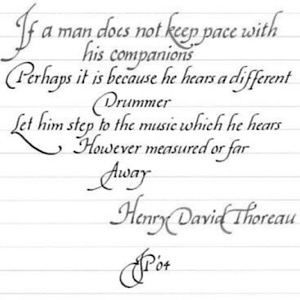 If a man does not keep pace with
his companions
Perhaps it is because he hears a different
Drummer
Let him step to the music which he hears
However measured or far
Away
Henry David Thoreau
JP '04